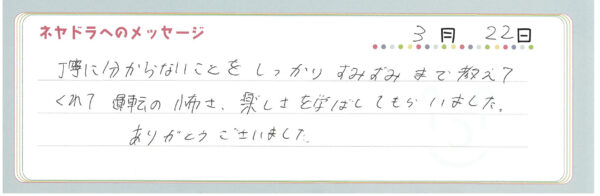 ネヤドラへのメッセージ
3月 22日
丁寧に分からないことを しっかり すみずみ まで 教えて
くれて 運転の 怖さ、楽しさを学ばしてもらいました。
ありがとうございました。